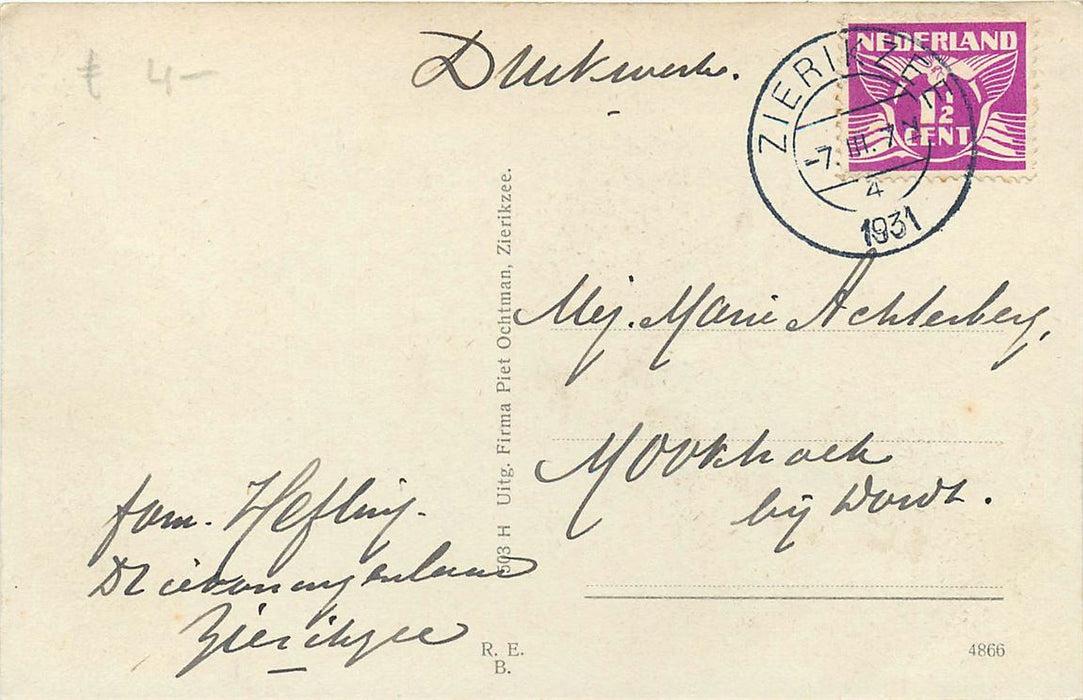 £ 4-
Drukwerk.
NEDERLAND
1½
CENT
ZIERIKZEE
-7.III.7
4
1931
503 H Uitg. Firma Piet Ochtman, Zierikzee.
Mej. Marie Achterberg,
Mookhoek
bij Dordt.
fam. Hefting.
Driekoningenlaan
Zierikzee
R. E.
B.
4866